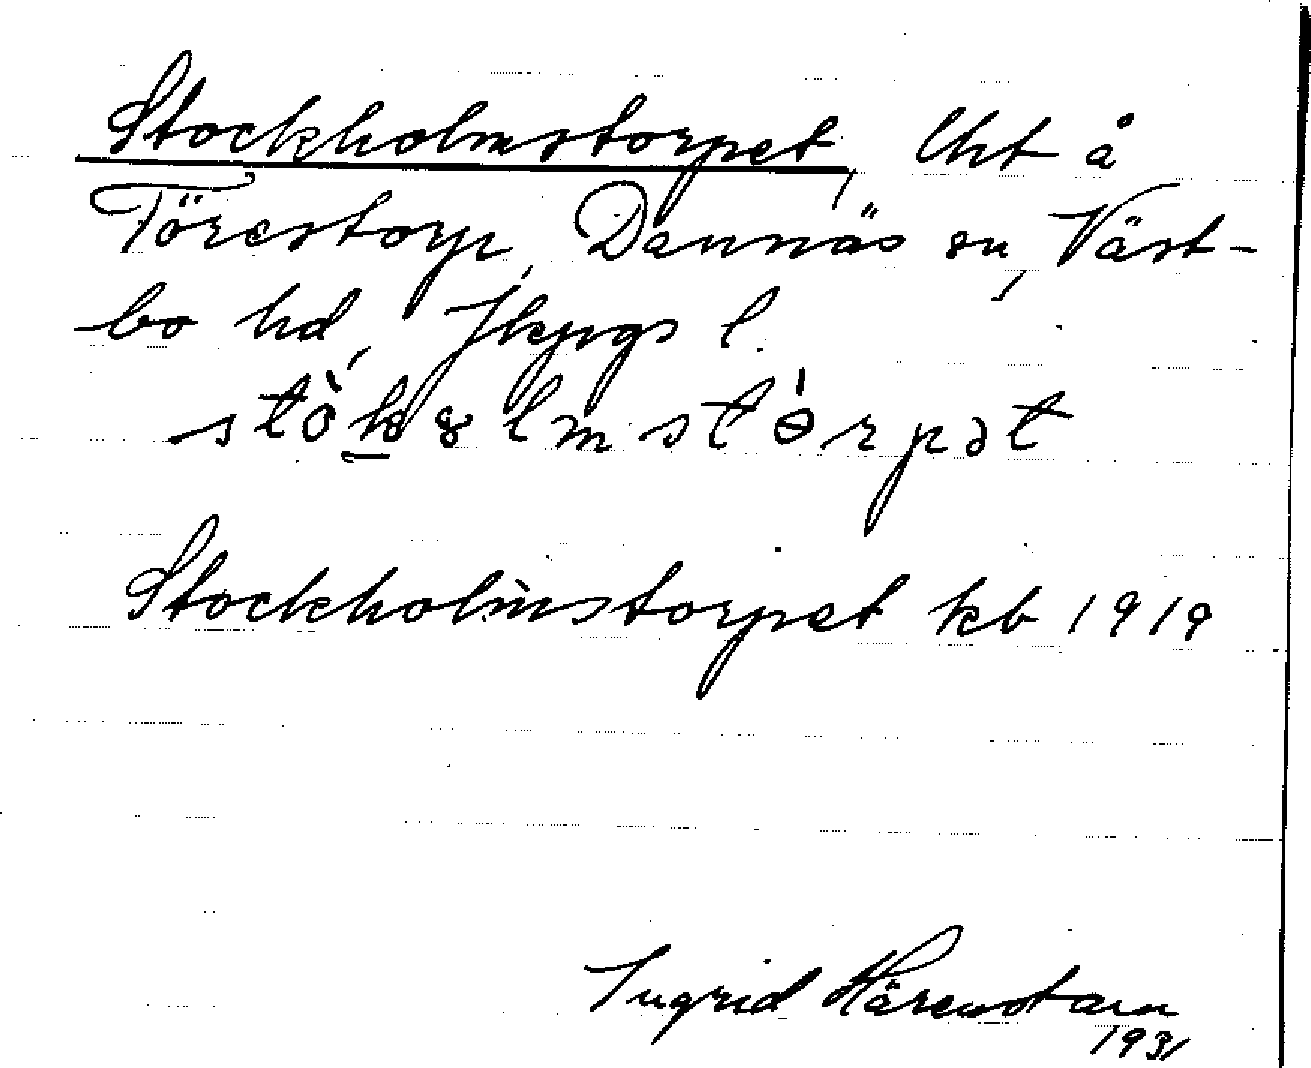 Stockholmstorpet, lht å
Törestorp, Dannäs sn, Väst-
bo hd, Jkpgs l.
stòk̲ȣlmstórpət
Stockholmstorpet kb 1919
Ingrid Härenstam
1931